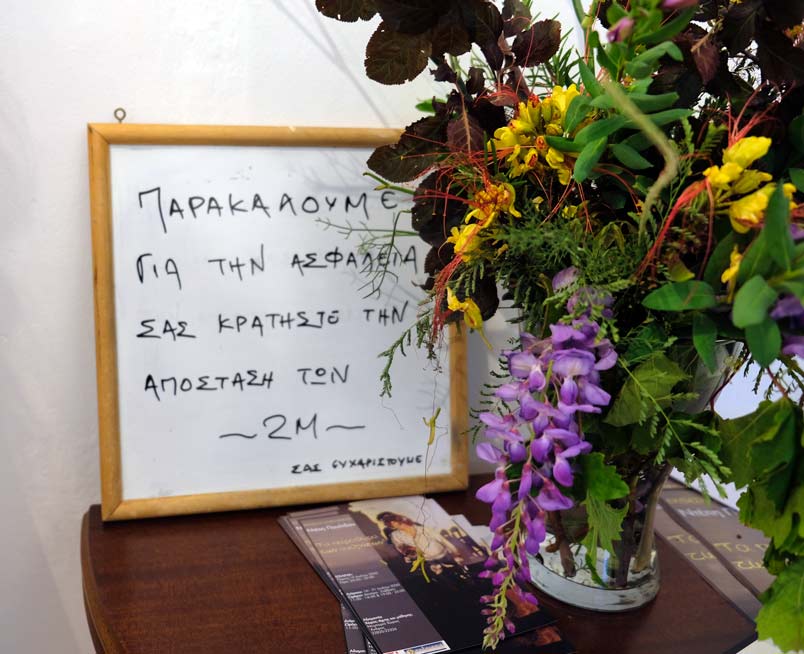 ΠΑΡΑΚΑΛΟΥΜΕ
ΓΙΑ ΤΗΝ ΑΣΦΑΛΕΙΑ
ΣΑΣ ΚΡΑΤΗΣΤΕ ΤΗΝ
ΑΠΟΣΤΑΣΗ ΤΩΝ
~2M~
ΣΑΣ ΕΥΧΑΡΙΣΤΟΥΜΕ